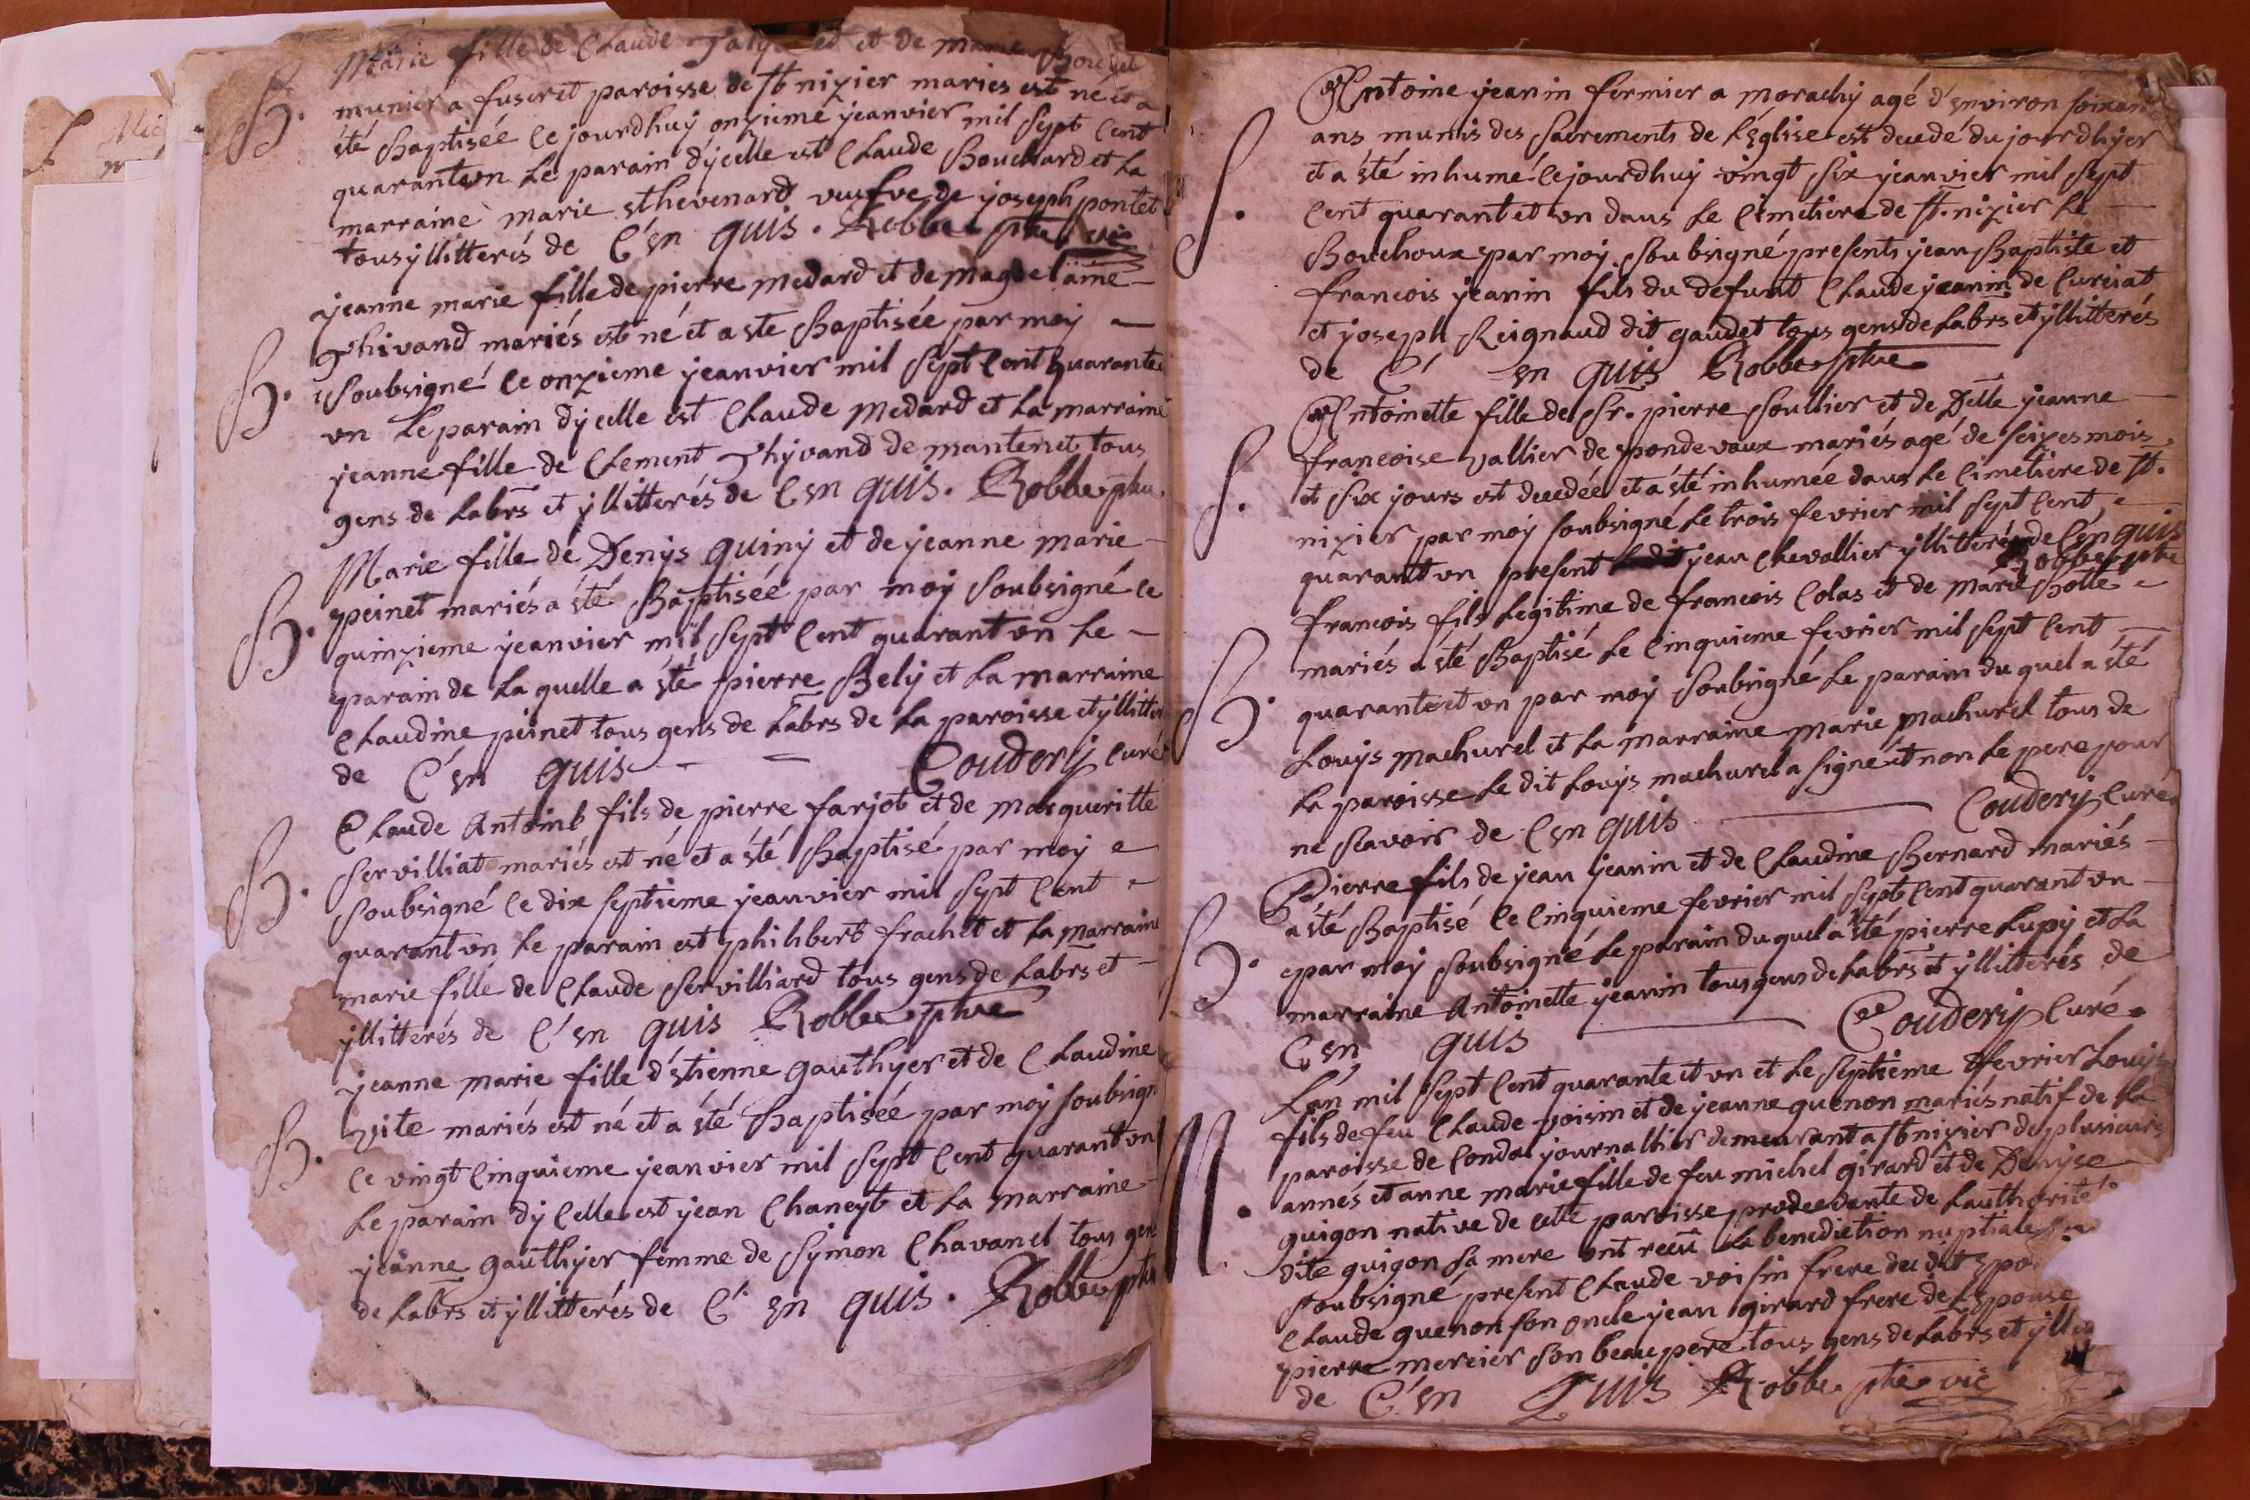 Marie fille de Claude et de marie
B. munier a fuseret paroisse de st nizier mariés est né et a
été Baptisée ce jourdhuy onzieme jeanvier mil sept cent
quarant un le parain dycelle est Claude Bouchard et la
marraine marie sthevenard veufve de joseph pontet
tous yllitterés de C'en quis. Robbe ptre vic
jeanne marie fille de pierre medard et de magdelaine
B. Thivand mariés est né et a ste Baptisée par moy
soubsigné ce onzieme jeanvier mil sept cent quarante
un le parain dycelle est Claude medard et la marraine
jeanne fille de Clement Thyvand de mantenet tous
gens de labrs et yllitterés de C en quis. Robbe ptre.
Marie fille de Denys quiny et de jeanne marie
B. peinet mariés a été Baptisée par moy soubsigné ce
quinzieme jeanvier mil sept cent quarant un le
parain de laquelle a été pierre Bely et la marraine
Claudine peinet tous gens de labrs de la paroisse et yllitter
de C'en quis Coudery curé
Claude Antoine fils de pierre farjot et de margueritte
B. servilliat mariés est né et a été Baptisé par moy
soubsigné ce dix septieme jeanvier mil sept cent
quarant un le parain est philibert frachet et la marraine
marie fille de Claude servilliard tous gens de labrs et
yllitterés de C'en quis Robbe ptre
jeanne marie fille d'étienne gauthyer et de Claudine
B. vite mariés est né et a été Baptisée par moy soubsign
ce vingt cinquieme jeanvier mil sept cent quarant un
le parain dycelle est jean Chaneyt et la marraine
jeanne gauthyer femme de symon Chavanel tous gen
de labrs et yllitterés de C' en quis. Robbe ptre
Antoine jeanin fermier a morachy agé d'environ soixan
S. ans munis des sacrements de L'Eglise est decedé du jourdhyer
et a été inhumé ce jourdhuy vingt six jeanvier mil sept
cent quarant et un dans le cimetiere de st. nizier le
Bouchoux par moy soubsigné presents jean Baptiste et
francois jeanin fils du defunt Claude jeanin de Curciat
et joseph Reignaud dit gaudet tous gens de labrs et yllitterés
de C' en quis Robbe ptre
Antoinette fille de Sr. pierre soullier et de Delle jeanne
S. francoise vallier de pondevaux mariés agé de seizes mois
et six jours est decedée et a été inhumée dans le cimetiere de st.
nizier par moy soubsigné le trois fevrier mil sept cent
quarant un present jean Chevallier yllitteré de C en quis
Robbe ptre
francois fils legitime de francois Colas et de marie Botte
B. mariés a été Baptisé le cinquieme fevrier mil sept cent
quarante et un par moy soubsigné le parain du quel a été
Louys machurel et la marraine marie machurel tous de
la paroisse le dit Louys machurel a signé et non le pere pour
ne scavoir de C en quis Coudery Curé
Pierre fils de jean jeanin et de Claudine Bernard mariés
B. a été Baptisé ce cinquieme fevrier mil sept cent quarant un
par moy soubsigné le parain du quel a été pierre Lupy et la
marraine Antoinette jeanin tous gens de labrs et yllitterés de
C en quis Coudery Curé.
L'an mil sept cent quarante et un et le septieme fevrier Louys
M. fils de feu Claude voisin et de jeanne guenon mariés natif de la
paroisse de Condal journallier demeurant a st nizier de plusieurs
annés et anne marie fille de feu michel girard et de Denyse
guigon native de cette paroisse procedante de l'authorité
dite guigon sa mere ont recû la benediction nuptiale
soubsigné present Claude voisin frere du dit
Claude guenon son oncle jean girard frere de l'Epouse
pierre mercier son beau pere tous gens de labrs et
de C'en Quis Robbe ptre vic